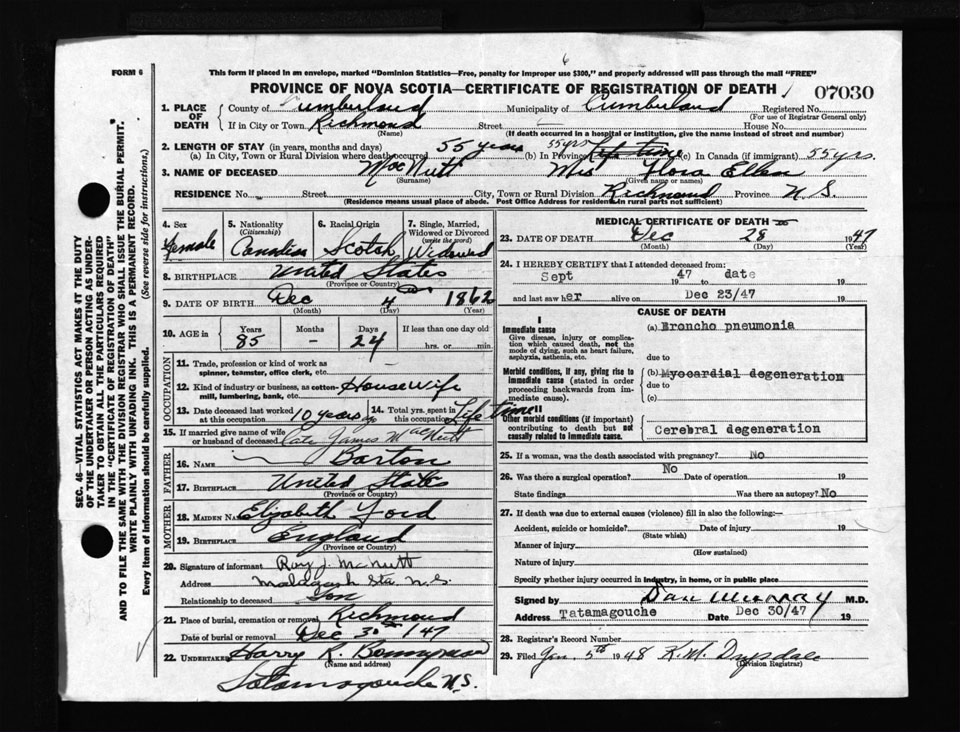 FORM 6
This form if placed in an envelope, marked "Dominion Statistics—Free, penalty for improper use $300," and properly addressed will pass through the mail "FREE"
PROVINCE OF NOVA SCOTIA—CERTIFICATE OF REGISTRATION OF DEATH
07030
1. PLACE OF DEATH
County of Cumberland Municipality of Cumberland Registered No.
(For use of Registrar General only)
If in City or Town Richmond Street House No.
(Name) (If death occurred in a hospital or institution, give the name instead of street and number)
2. LENGTH OF STAY (in years, months and days)
(a) In City, Town or Rural Division where death occurred 55 years (b) In Province 55 yrs life time (c) In Canada (if immigrant) 55 yrs.
3. NAME OF DECEASED MacNutt Mrs Flora Ellen
(Surname) (Given name or names)
RESIDENCE No. Street City, Town or Rural Division Richmond Province N.S.
(Residence means usual place of abode. Post Office Address for residents in rural parts not sufficient)
4. Sex Female
5. Nationality (Citizenship) Canadian
6. Racial Origin Scotch
7. Single, Married, Widowed or Divorced (write the word) Widowed
8. BIRTHPLACE United States
(Province or Country)
9. DATE OF BIRTH Dec 4 1862
(Month) (Day) (Year)
10. AGE in Years 85 Months – Days 24 If less than one day old hrs. or min.
OCCUPATION
11. Trade, profession or kind of work as spinner, teamster, office clerk, etc.
12. Kind of industry or business, as cotton-mill, lumbering, bank, etc. Housewife
13. Date deceased last worked at this occupation 10 years
14. Total yrs. spent in this occupation Life time
15. If married give name of wife or husband of deceased Late James MacNutt
FATHER
16. NAME Barton
17. BIRTHPLACE United States
(Province or Country)
MOTHER
18. MAIDEN NAME Elizabeth Ford
19. BIRTHPLACE England
(Province or Country)
20. Signature of informant Roy J. McNutt
Address Malagash Sta. N.S.
Relationship to deceased Son
21. Place of burial, cremation or removal Richmond
Date of burial or removal Dec 30 /47
22. Undertaker Harry R.
(Name and address)
Tatamagouche N.S.
MEDICAL CERTIFICATE OF DEATH
23. DATE OF DEATH Dec 28 1947
(Month) (Day) (Year)
24. I HEREBY CERTIFY that I attended deceased from:
Sept 19 47 to date 19
and last saw her alive on Dec 23/47 19
CAUSE OF DEATH
I
Immediate cause
Give disease, injury or complication which caused death, not the mode of dying, such as heart failure, asphyxia, asthenia, etc.
(a) Broncho pneumonia
due to
Morbid conditions, if any, giving rise to immediate cause (stated in order proceeding backwards from immediate cause).
(b) Myocardial degeneration
due to
(c)
II
Other morbid conditions (if important) contributing to death but not causally related to immediate cause.
Cerebral degeneration
25. If a woman, was the death associated with pregnancy? No
26. Was there surgical operation? No Date of operation 19
State findings Was there an autopsy? No
27. If death was due to external causes (violence) fill in also the following:—
Accident, suicide or homicide? Date of injury 19
(State which)
Manner of injury
(How sustained)
Nature of injury
Specify whether injury occurred in industry, in home, or in public place
Signed by Dan Murray M.D.
Address Tatamagouche Date Dec 30/47 19
28. Registrar's Record Number
29. Filed Jan. 5th 1948 K.M. Drysdale
(Division Registrar)
SEC. 46—VITAL STATISTICS ACT MAKES IT THE DUTY
OF THE UNDERTAKER OR PERSON ACTING AS UNDER-
TAKER TO OBTAIN ALL THE PARTICULARS REQUIRED
IN THE "CERTIFICATE OF REGISTRATION OF DEATH"
AND TO FILE THE SAME WITH THE DIVISION REGISTRAR WHO SHALL ISSUE THE BURIAL PERMIT.
WRITE PLAINLY WITH UNFADING INK. THIS IS A PERMANENT RECORD.
Every item of information should be carefully supplied. (See reverse side for instructions.)